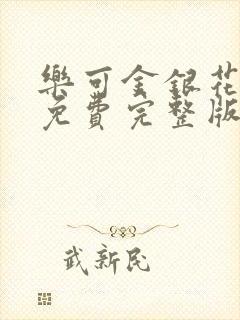 樂可金銀花
免費完整版
武新民